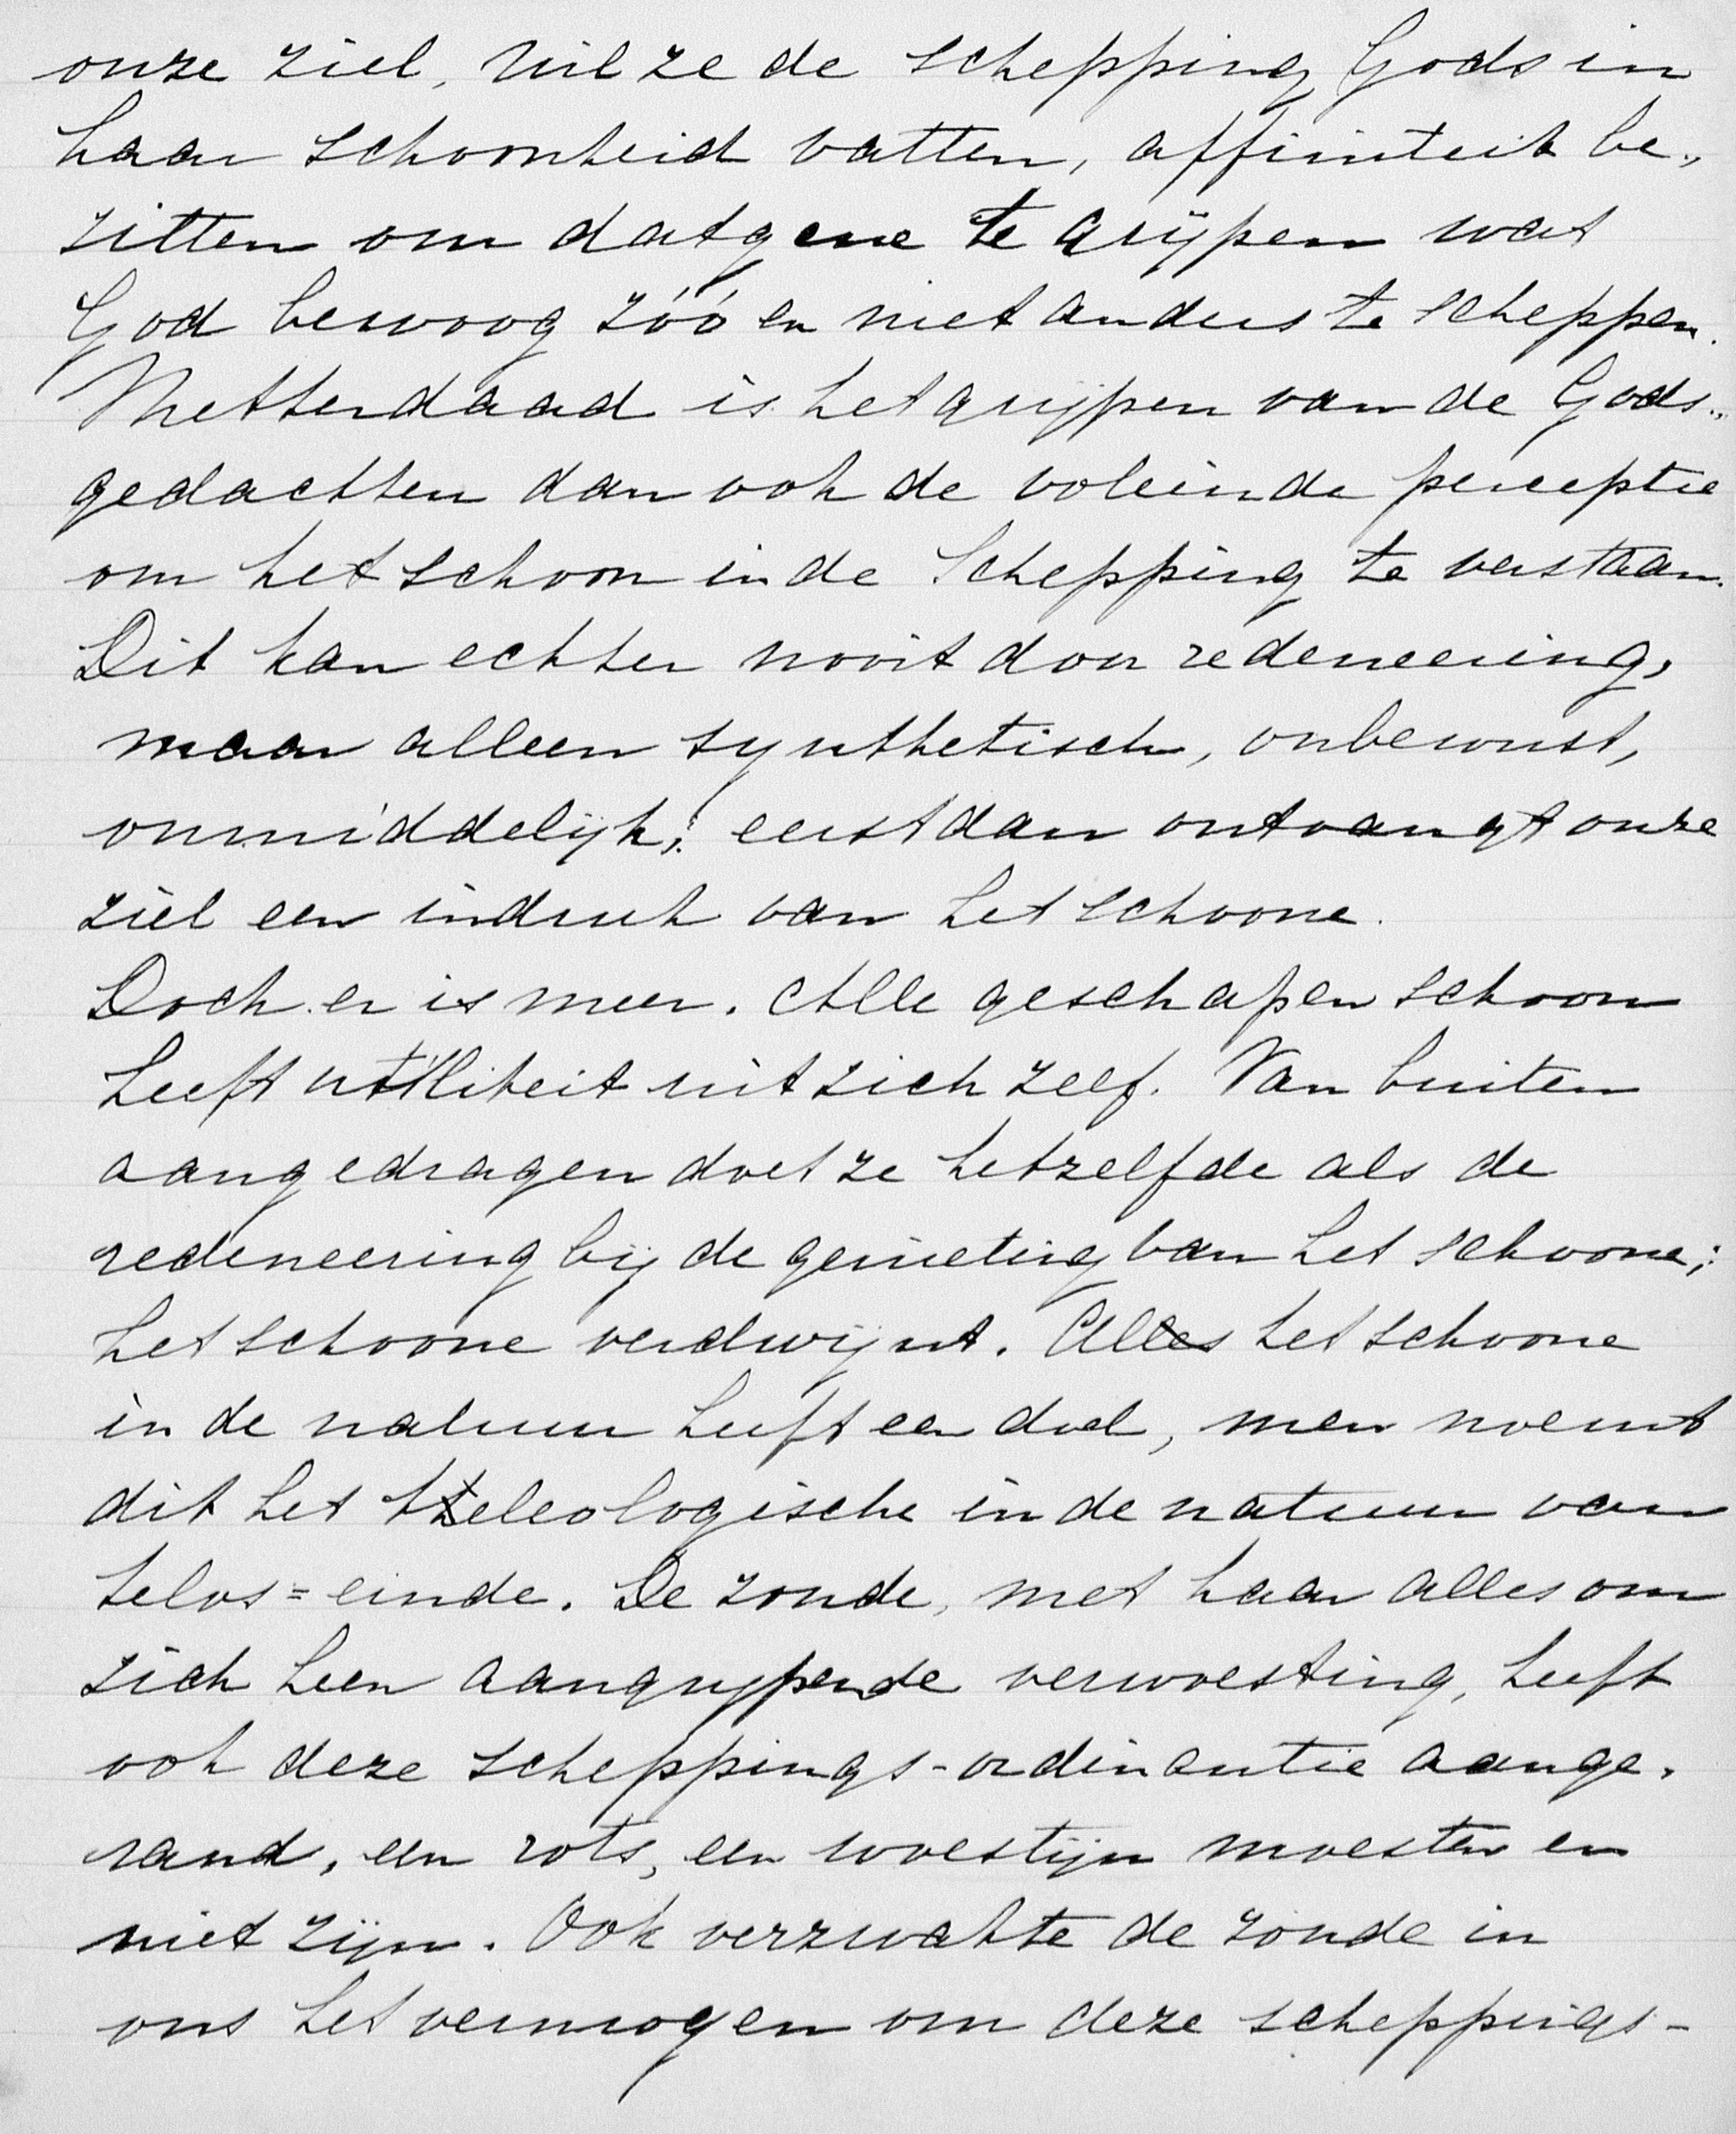 onze ziel, wil ze de schepping Gods in
haar schoonheid vatten, affiniteit be„
zitten om datgene te grijpen wat
God bewoog zóó en niet anders te scheppen.
Metterdaad is het grijpen van de Gods„
gedachten dan ook de voleinde perceptie
om het schoon in de Schepping te verstaan.
Dit kan echter nooit door redeneering,
maar alleen synthetisch, onbewust,
onmiddelijk; eerst dan ontvangt onze
ziel een indruk van het schoone.
Doch er is meer. Alle geschapen schoon
heeft utiliteit uit zich zelf. Van buiten
aangedragen doet ze hetzelfde als de
redeneering bij de genieting van het schoone;
het schoone verdwijnt. Alles het schoone
in de natuur heeft een doel, men noemt
dit het teleologische in de natuur van
telos = einde. De zonde, met haar alles om
zich heen aangrijpende verwoesting, heeft
ook deze scheppings-ordinantie aange„
rand, een rots, een woestijn moesten er
niet zijn. Ook verzwakte de zonde in
ons het vermogen om deze scheppings-